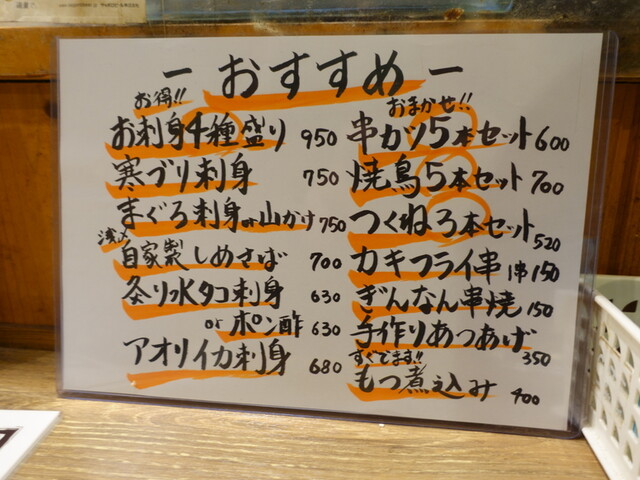 ー おすすめ ー
お得!!
お刺身4種盛り 950
寒ブリ刺身 750
まぐろ刺身or山かけ 750
浅〆
自家製しめさば 700
炙り水タコ刺身 630
orポン酢 630
アオリイカ刺身 680
おまかせ!!
串カツ5本セット 600
焼鳥5本セット 700
つくね3本セット 520
カキフライ串 1串150
ぎんなん串焼 150
手作りあつあげ 350
すぐでます!!
もつ煮込み 400